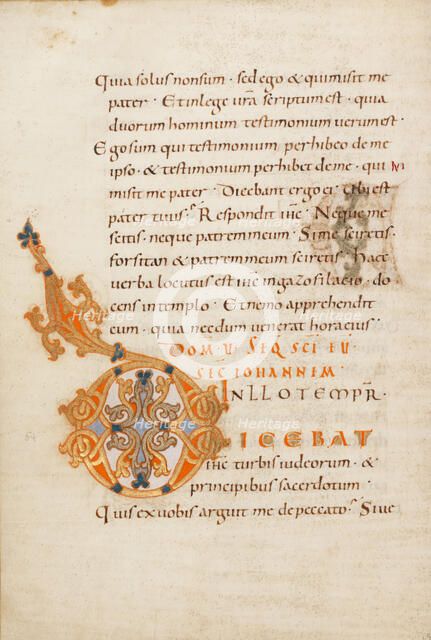 quia solus non sum · sed ego & qui misit me
pater · Et in lege vrā scriptum est · quia
duorum hominum testimonium verum est ·
Ego sum qui testimonium perhibeo de me
ipso · & testimonium perhibet de me · qui
misit me pater · Dicebant ergo ei · Ubi est
pater tuus · Respondit ihc · Neque me
scitis · neque patrem meum · Si me sciretis ·
forsitan & patrem meum sciretis · Haec
verba locutus est ihc in gazofilacio · do
cens in templo · Et nemo apprehendit
eum · quia necdum venerat hora eius ·
DOM · V · SEQ SCI EV
SEC IOHANNEM ·
IN ILLO TEMPR ·
DICEBAT
ihc turbis iudeorum · &
principibus sacerdotum ·
Quis ex vobis arguit me de peccato · Si ve